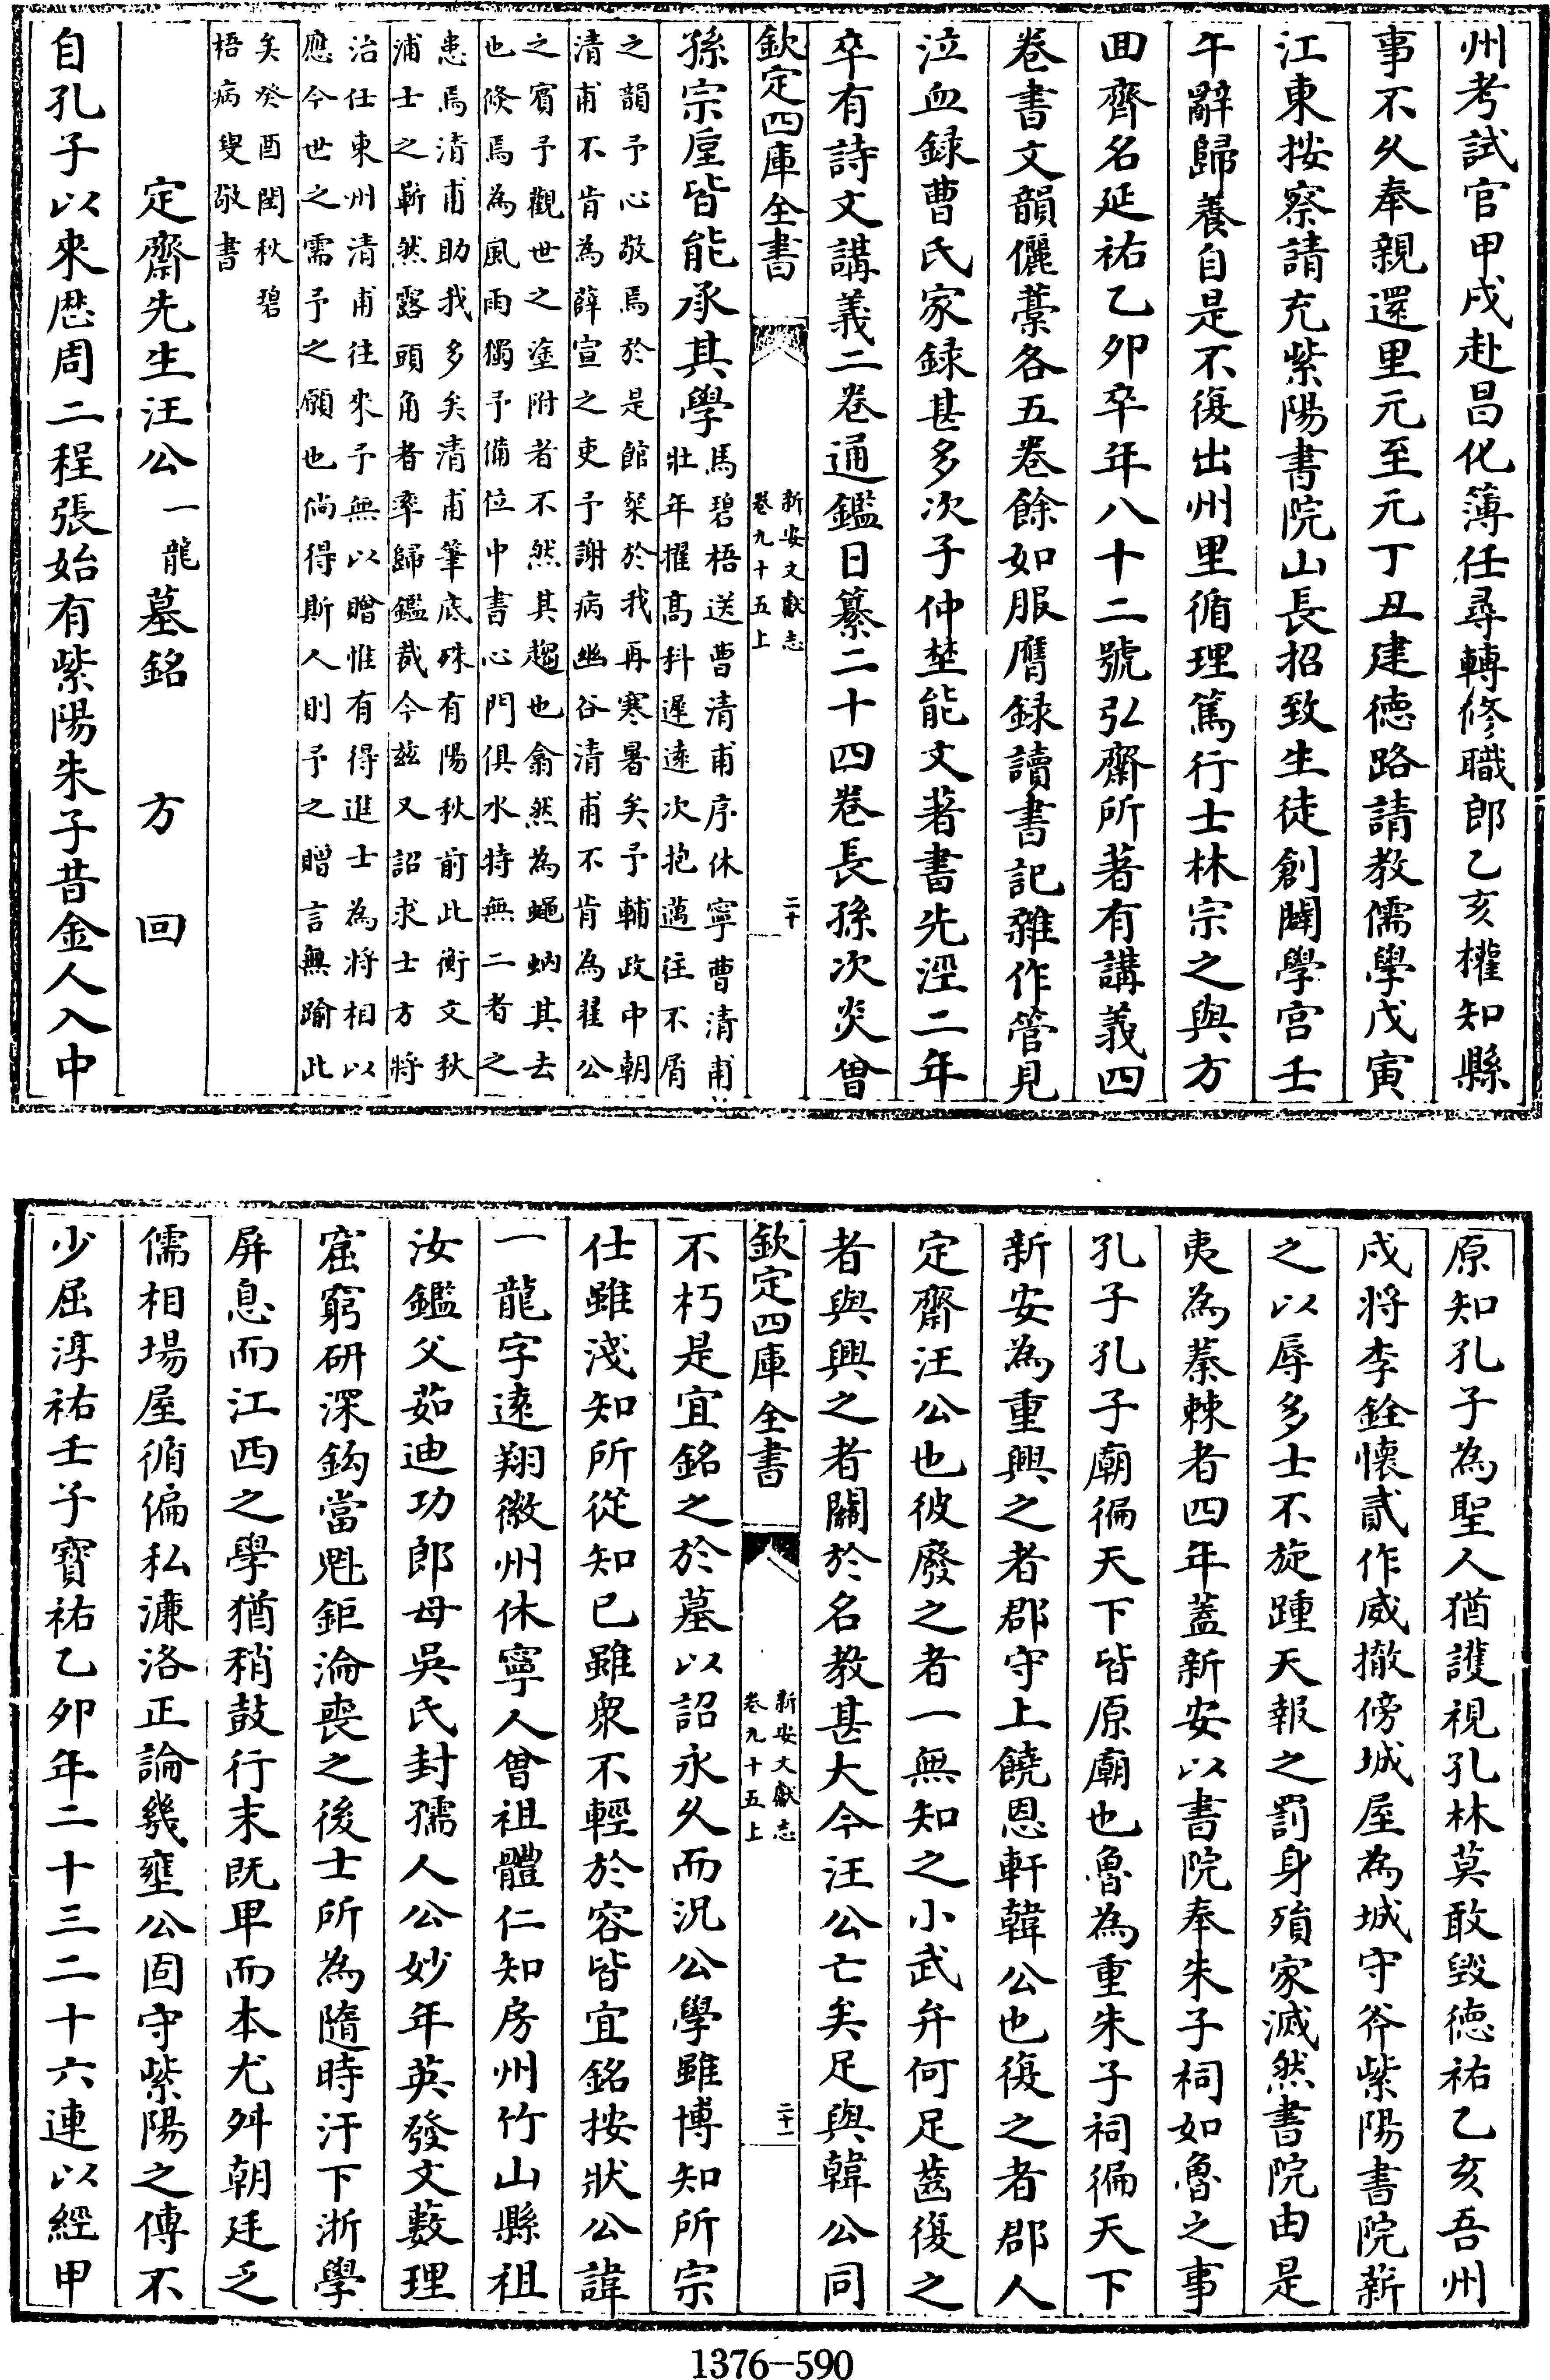 州考試官甲戌赴昌化簿任尋轉修職郎乙亥權知縣
事不久奉親還里元至元丁丑建徳路請教儒學戊寅
江東按察請充紫陽書院山長招致生徒創闢學宫壬
午辭歸養自是不復出州里循理篤行士林宗之與方
回齊名延祐乙卯卒年八十二號弘齋所著有講義四
卷書文韻儷藁各五卷餘如服膺録讀書記雜作管見
泣血録曹氏家録甚多次子仲埜能文著書先涇二年
卒有詩文講義二卷通鑑日纂二十四卷長孫次炎曾
欽定四庫全書
新安文獻志
卷九十五上
二十
孫宗垕皆能承其學
馬碧梧送曹清甫序休寧曹清甫
壯年擢髙科遲遠次抱邁往不屑
之韻予心敬焉於是館粲於我再寒暑矣予輔政中朝
清甫不肯為薛宣之吏予謝病幽谷清甫不肯為翟公
之賓予觀世之塗附者不然其趨也翕然為蠅蚋其去
也倏焉為風雨獨予備位中書心門俱水特無二者之
患焉清甫助我多矣清甫筆底殊有陽秋前此衡文秋
浦士之嶄然露頭角者率歸鑑裁今兹又詔求士方將
治任東州清甫往來予無以贈惟有得進士為將相以
應今世之需予之願也倘得斯人則予之贈言無踰此
矣癸酉閏秋碧
梧病叟敬書
定齋先生汪公一龍墓銘　方回
自孔子以來歴周二程張始有紫陽朱子昔金人入中
原知孔子為聖人猶䕶視孔林莫敢毁徳祐乙亥吾州
戍將李銓懷貳作威撤傍城屋為城守斧紫陽書院薪
之以辱多士不旋踵天報之罰身殞家滅然書院由是
夷為蓁棘者四年蓋新安以書院奉朱子祠如魯之事
孔子孔子廟徧天下皆原廟也魯為重朱子祠徧天下
新安為重興之者郡守上饒恩軒韓公也復之者郡人
定齋汪公也彼廢之者一無知之小武弁何足齒復之
者與興之者關於名教甚大今汪公亡矣足與韓公同
欽定四庫全書
新安文獻志
卷九十五上
二十一
不朽是宜銘之於墓以詔永久而況公學雖博知所宗
仕雖淺知所從知已雖衆不輕於容皆宜銘按狀公諱
一龍字逺翔徽州休寧人曾祖體仁知房州竹山縣祖
汝鑑父茹迪功郎母吳氏封孺人公妙年英發文藪理
窟窮研深鈎當魁鉅淪喪之後士所為隨時汙下浙學
屏息而江西之學猶稍鼓行末既卑而本尤舛朝廷乏
儒相場屋循偏私濓洛正論幾壅公固守紫陽之傳不
少屈淳祐壬子寳祐乙卯年二十三二十六連以經甲
1376—590